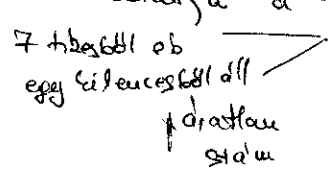 7 tizesből és
egy kilencesből áll
páratlan
szám